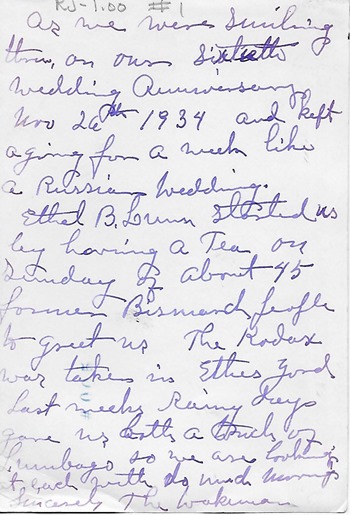 RJ-1.00 #1
As we were Smiling
thru, on our Sixtieth
wedding Anniversary
Nov 26th 1934 and kept
agoing for a week like
a Russian Wedding.
Ethel B. Lunn Started us
by having a Tea on
Sunday of about 45
former Bismarck people
to greet us The Kodax
was taken in Ethels Yard
Last weeks Rainy days
gave us both a touch of
Lumbago so we are looking
at each with so much
Sincerely The Wakeman